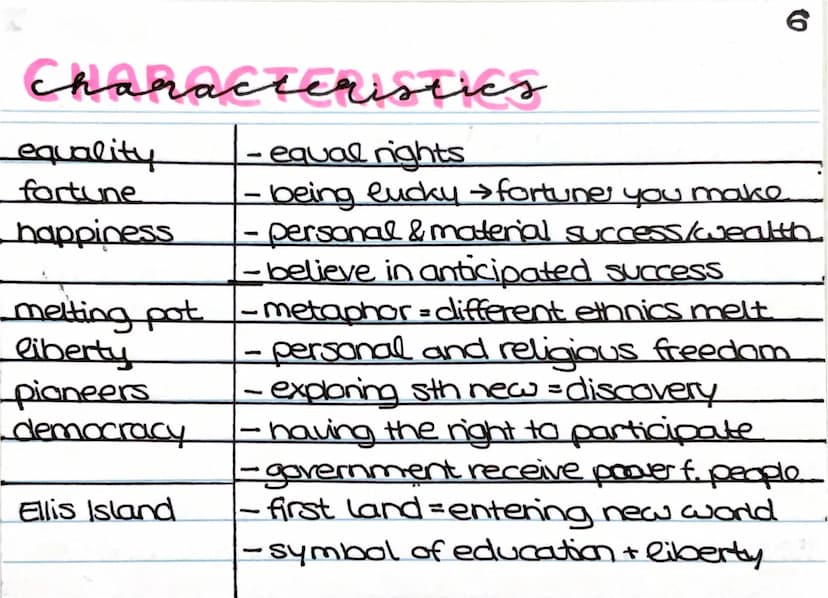 6
CHARACTERISTICS
characteristics
equality - equal rights
fortune - being lucky → fortune, you make
happiness - personal & material success/wealth
- believe in anticipated success
melting pot - metaphor = different ethnics melt
liberty - personal and religious freedom
pioneers - exploring sth new = discovery
democracy - having the right to participate
- government receive power f. people
Ellis Island - first land = entering new world
- symbol of education + liberty